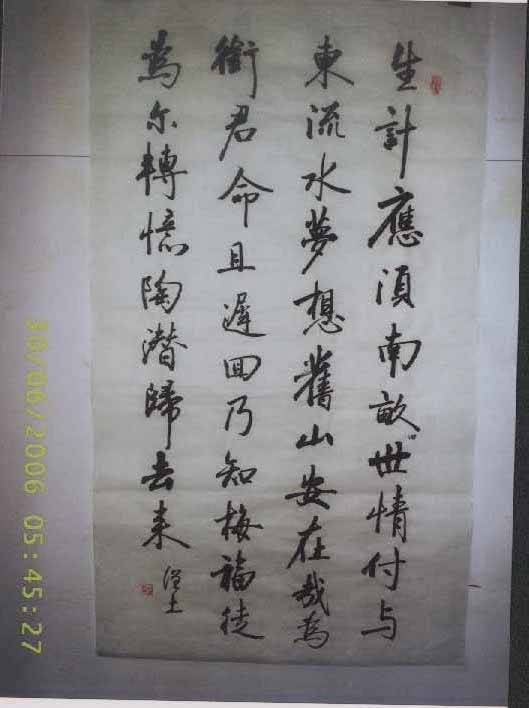 生計應須南畝世情付与
東流水夢想舊山安在哉為
銜君命且遲回乃知梅福徒
為尔轉憶陶潛歸去来
30/06/2006 05:45:27